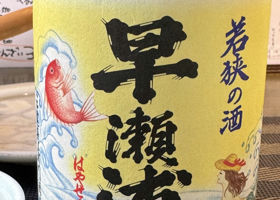 若狭の酒
早瀬浦
はやせ